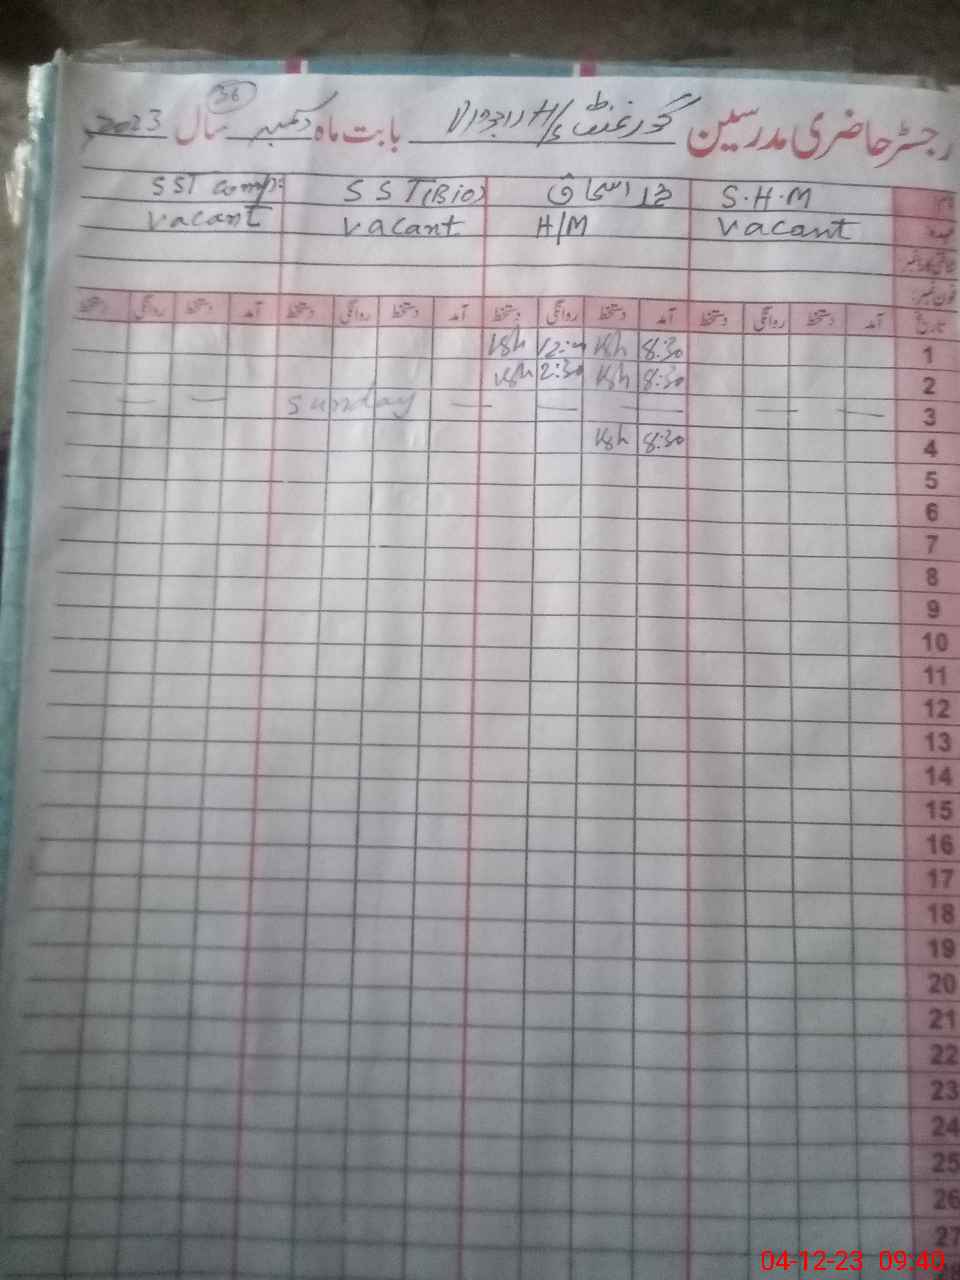 36
رجسٹر حاضری مدرسین گورنمنٹ H/S بابت ماہ دسمبر سال 2023
نام S.H.M محمد اسحاق SST(Bio) SST comp:
عہدہ Vacant H/M Vacant Vacant
شناختی کارڈ نمبر
فون نمبر:
تاریخ آمد دستخط روانگی دستخط آمد دستخط روانگی دستخط آمد دستخط روانگی دستخط آمد دستخط روانگی دستخط
1 8:30
2 8:30 2:30
3 — — — — — Sunday — —
4 8:30
5
6
7
8
9
10
11
12
13
14
15
16
17
18
19
20
21
22
23
24
25
26
27
04-12-23 09:40